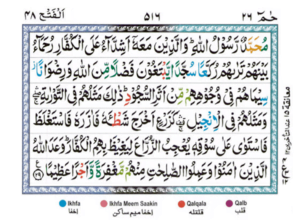 حٰمٓ ۲۶ ۵۱۶ اَلْفَتْح ۴۸
مُحَمَّدٌ رَّسُوْلُ اللّٰهِ ؕ وَالَّذِيْنَ مَعَهٗۤ اَشِدَّآءُ عَلَى الْكُفَّارِ رُحَمَآءُ
بَيْنَهُمْ تَرٰىهُمْ رُكَّعًا سُجَّدًا يَّبْتَغُوْنَ فَضْلًا مِّنَ اللّٰهِ وَرِضْوَانًا ؗ
سِيْمَاهُمْ فِيْ وُجُوْهِهِمْ مِّنْ اَثَرِ السُّجُوْدِ ؕ ذٰلِكَ مَثَلُهُمْ فِي التَّوْرٰىةِ
وَمَثَلُهُمْ فِي الْاِنْجِيْلِ كَزَرْعٍ اَخْرَجَ شَطْـَٔهٗ فَاٰزَرَهٗ فَاسْتَغْلَظَ
فَاسْتَوٰى عَلٰى سُوْقِهٖ يُعْجِبُ الزُّرَّاعَ لِيَغِيْظَ بِهِمُ الْكُفَّارَ ؕ وَعَدَ اللّٰهُ
الَّذِيْنَ اٰمَنُوْا وَعَمِلُوا الصّٰلِحٰتِ مِنْهُمْ مَّغْفِرَةً وَّاَجْرًا عَظِيْمًا ۲۹
Ikhfa Ikhfa Meem Saakin Qalqala Qalb
اخفا اخفا میم ساکن قلقلہ قلب